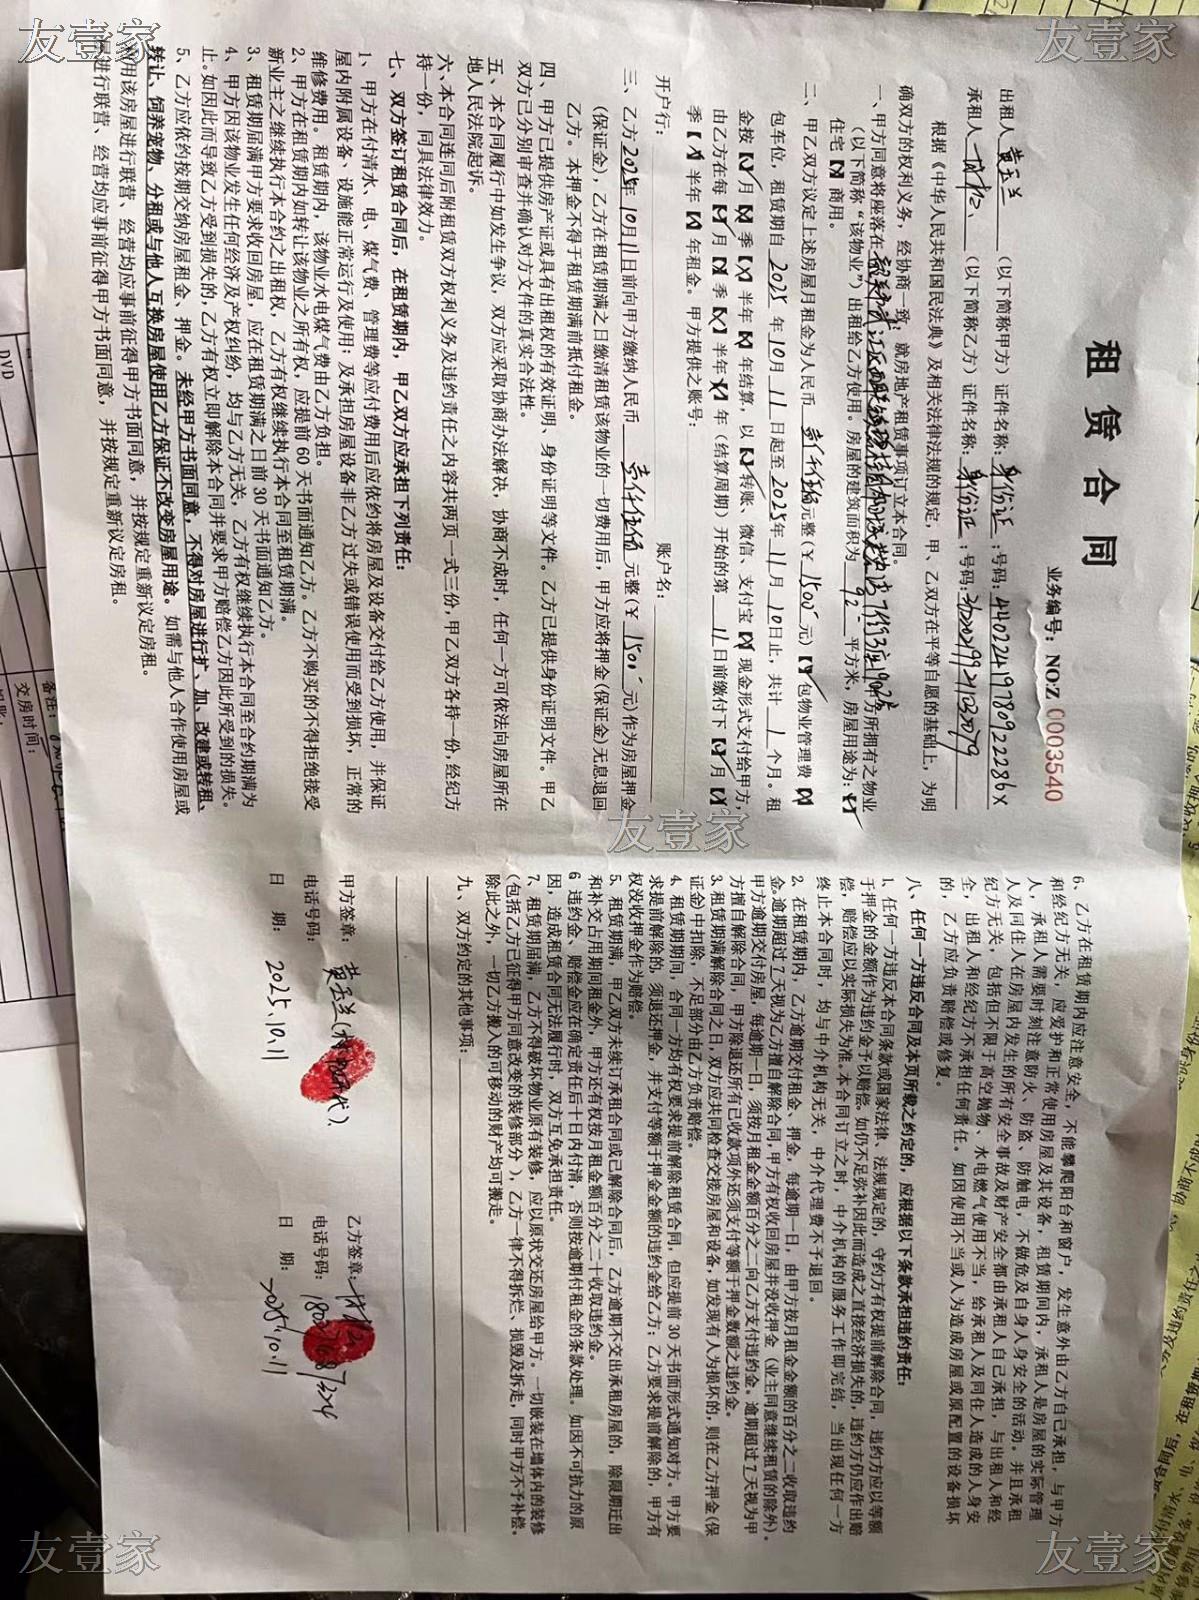 租赁合同
业务编号：NO:Z 0003540
出租人 黄玉兰 （以下简称甲方）证件名称：身份证；号码：44022419780922286X
承租人 （以下简称乙方）证件名称：身份证；号码：
根据《中华人民共和国民法典》及相关法律法规的规定，甲、乙双方在平等自愿的基础上，为明
确双方的权利义务，经协商一致，就房地产租赁事项订立本合同。
一、甲方同意将座落在 甲方所拥有之物业
（以下简称“该物业”）出租给乙方使用。房屋的建筑面积为 92 平方米，房屋用途为：【✓】
住宅【×】商用。
二、甲乙双方议定上述房屋月租金为人民币 壹仟伍佰 元整（￥1500元）【✓】包物业管理费【×】
包车位，租赁期自 2025 年 10 月 11 日起至 2025 年 11 月 10 日止，共计 1 个月。租
金按【✓】月【×】季【×】半年【×】年结算，以【✓】转账、微信、支付宝【×】现金形式支付给甲方，
由乙方在每【✓】月【×】季【×】半年【×】年（结算周期）开始的第 11 日前缴付下【✓】月【×】
季【×】半年【×】年租金。甲方提供之账号：
开户行： 账户名：
三、乙方2025年10月11日前向甲方缴纳人民币 壹仟伍佰 元整（￥1500元）作为房屋押金
（保证金），乙方在租赁期满之日缴清租赁该物业的一切费用后，甲方应将押金（保证金）无息退回
乙方。本押金不得于租赁期满前抵付租金。
四、甲方已提供房产证或具有出租权的有效证明、身份证明等文件。乙方已提供身份证明文件。甲乙
双方已分别审查并确认对方文件的真实合法性。
五、本合同履行中如发生争议，双方应采取协商办法解决，协商不成时，任何一方可依法向房屋所在
地人民法院起诉。
六、本合同连同后附租赁双方权利义务及违约责任之内容共两页一式三份，甲乙双方各持一份，经纪方
持一份，同具法律效力。
七、双方签订租赁合同后，在租赁期内，甲乙双方应承担下列责任：
1、甲方在付清水、电、煤气费、管理费等应付费用后应依约将房屋及设备交付给乙方使用，并保证
屋内附属设备、设施能正常运行及使用；及承担房屋设备非乙方过失或错误使用而受到损坏，正常的
维修费用。租赁期内，该物业水电煤气费由乙方负担。
2、甲方在租赁期内如转让该物业之所有权，应提前60天书面通知乙方。乙方不购买的不得拒绝接受
新业主之继续执行本合约之出租权，乙方有权继续执行本合同至租赁期满。
3、租赁期届满甲方要求收回房屋，应在租赁期满之日前30天书面通知乙方。
4、甲方因该物业发生任何经济及产权纠纷，均与乙方无关，乙方有权继续执行本合同至合约期满为
止。如因此而导致乙方受到损失的，乙方有权立即解除本合同并要求甲方赔偿乙方因此所受到的损失。
5、乙方应依约按期交纳房屋租金、押金。未经甲方书面同意，不得对房屋进行扩、加、改建或转租、
转让、饲养宠物、分租或与他人互换房屋使用乙方保证不改变房屋用途。如需与他人合作使用房屋或
利用该房屋进行联营、经营均应事前征得甲方书面同意，并按规定重新议定房租。
屋进行联营、经营均应事前征得甲方书面同意，并按规定重新议定房租。
6、乙方在租赁期内应注意安全，不能攀爬阳台和窗户，发生意外由乙方自己承担，与甲方
和经纪方无关，应爱护和正常使用房屋及其设备，租赁期间内，承租人是房屋的实际管理
人，承租人需要时刻注意防火、防盗、防触电，不做危及自身人身安全的活动。并且承租
人及同住人在房屋内发生的所有安全事故及财产安全都由承租人自己承担，与出租人和经
纪方无关，包括但不限于高空抛物、水电燃气使用不当，给承租人及同住人造成的人身安
全，出租人和经纪方不承担任何责任。如因使用不当或人为造成房屋或原配置的设备损坏
的，乙方应负责赔偿或修复。
八、任何一方违反合同及本页所载之约定的，应根据以下条款承担违约责任：
1、任何一方违反本合同条款或国家法律、法规规定的，守约方有权提前解除合同，违约方应以等额
于押金的金额作为违约金予以赔偿。如仍不足弥补因此而造成之直接经济损失的，违约方仍应作出赔
偿，赔偿应以实际损失为准。本合同订立之时，中介机构的服务工作即完结，当出现任何一方
终止本合同时，均与中介机构无关，中介代理费不予退回。
2、在租赁期内，乙方逾期交付租金、押金，每逾期一日，由甲方按月租金金额的百分之二收取违约
金。逾期超过7天视为乙方擅自解除合同，甲方有权收回房屋并没收押金（业主同意继续租赁的除外）。
甲方逾期交付房屋，每逾期一日，须按月租金金额百分之二向乙方支付违约金。逾期超过7天视为甲
方擅自解除合同，甲方除退还所有已收款项外还须支付等额于押金数额之违约金。
3、租赁期满解除合同之日，双方应共同检查交接房屋和设备，如发现有人为损坏的，则在乙方押金（保
证金）中扣除，不足部分由乙方负责赔偿。
4、租赁期期间，合同一方均有权要求提前解除租赁合同，但应提前30天书面形式通知对方。甲方要
求提前解除的，须退还押金，并支付等额于押金金额的违约金给乙方；乙方要求提前解除的，甲方有
权没收押金作为赔偿。
5、租赁期满，甲乙双方未续订承租合同或已解除合同后，乙方逾期不交出承租房屋的，除限期迁出
和补交占用期间租金外，甲方还有权按月租金额百分之二十收取违约金。
6 违约金、赔偿金应在确定责任后十日内付清，否则按逾期付租金的条款处理。如因不可抗力的原
因，造成租赁合同无法履行时，双方互免承担责任。
7、租赁期届满，乙方不得破坏物业原有装修，应以原状交还房屋给甲方。一切嵌装在墙体内的装修
（包括乙方已征得甲方同意改变的装修部分），乙方一律不得拆烂、损毁及拆走，同时甲方不予补偿。
除此之外，一切乙方搬入的可移动的财产均可搬走。
九、双方约定的其他事项：
甲方签章：黄玉兰
电话号码：
日 期：2025.10.11
乙方签章：
电话号码：
日 期：2025/10.11
DVD
备注：
交房时间：
友壹家
友壹家
友壹家
友壹家
友壹家